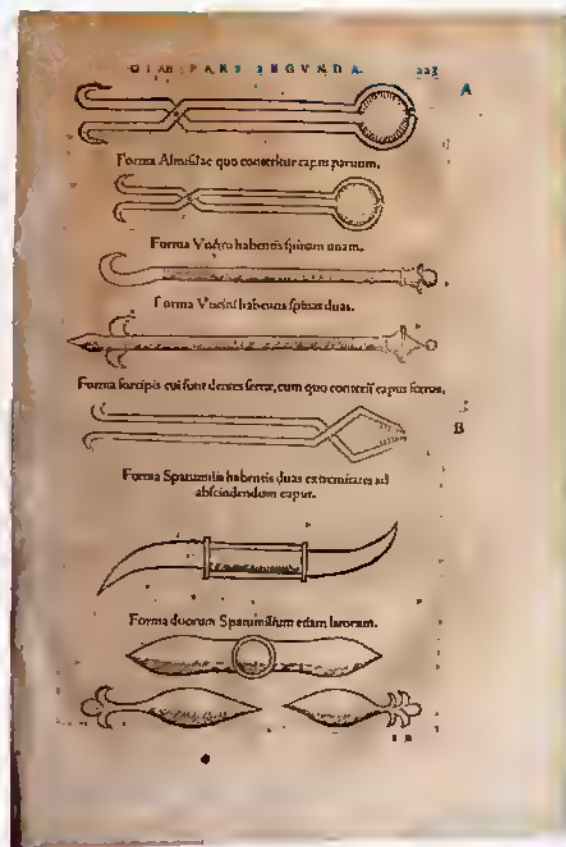 PARS 223
A
Forma Almisdac quo conteritur caput paruum.
Forma habentis spinam unam.
Forma Vncini habentis spinas duas.
Forma forcipis cui sunt dentes serræ, cum quo conteris caput fœtus.
B
Forma Spatumilis habentis duas extremitates ad
abscindendum caput.
Forma duorum Spatumilium etiam latorum.